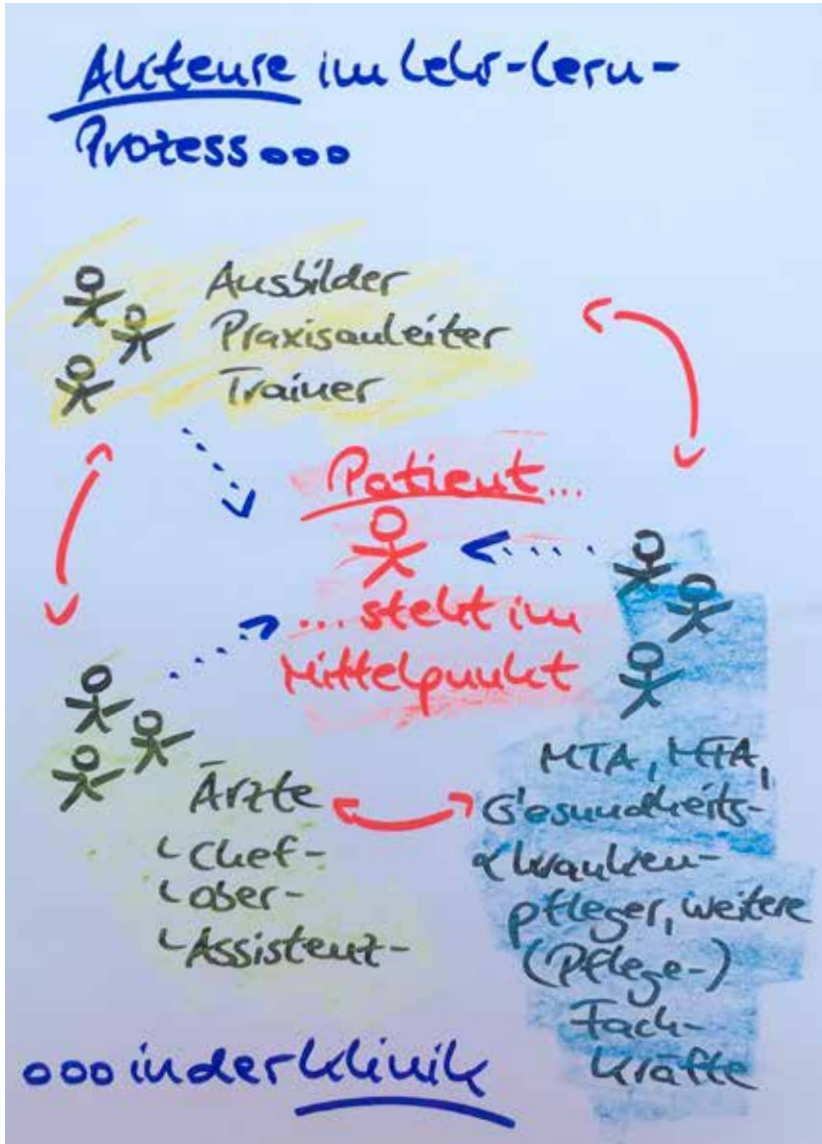 Akteure im Lehr-Lern-
Prozess...
Ausbilder
Praxisanleiter
Trainer
Patient...
...steht im
Mittelpunkt
Ärzte
Chef-
Ober-
Assistenz-
MTA, MFA,
Gesundheits-
& Kranken-
pfleger, weitere
(Pflege-)
Fach-
kräfte
...in der Klinik